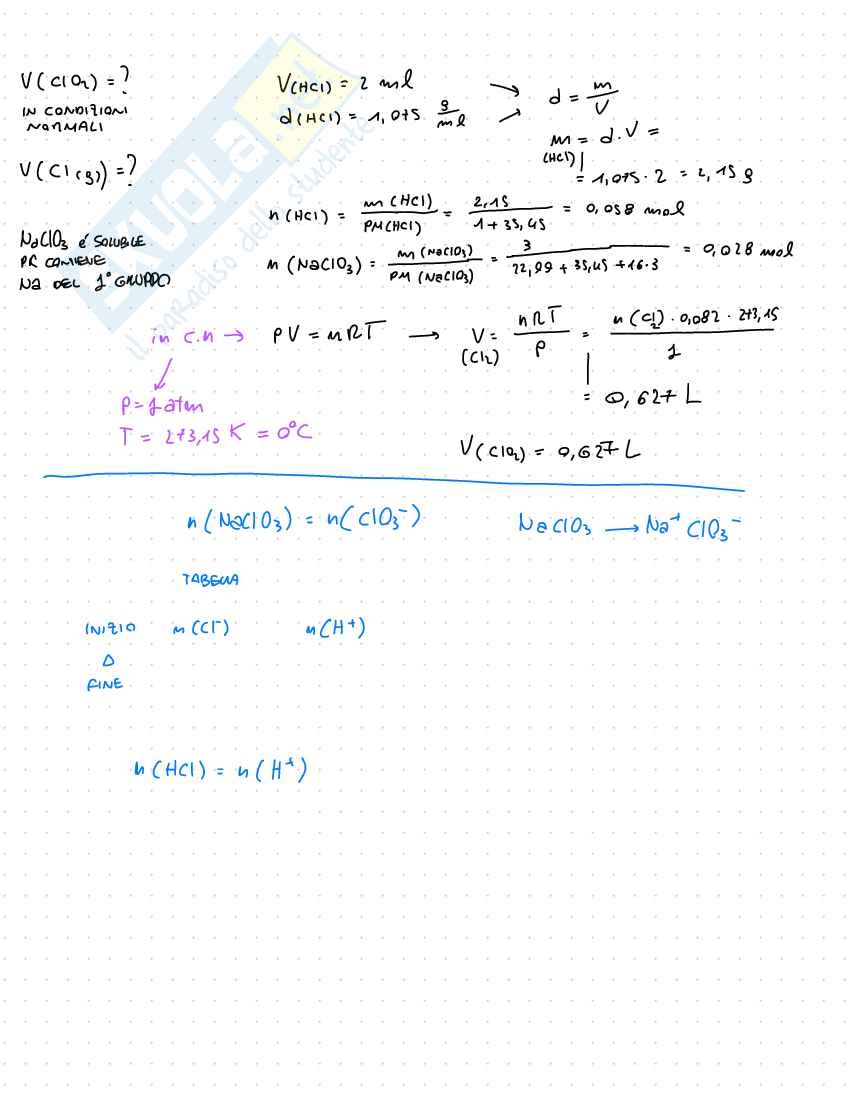 V(ClO2) = ?
IN CONDIZIONI
NORMALI
V(Cl(g)) = ?
NaClO3 é SOLUBILE
PR CONIENE
Na DEL 1° GRUPPO
V(HCl) = 2 ml
d(HCl) = 1,075 g/ml
d = m/V
m = d·V =
(HCl)
= 1,075 · 2 = 2,15 g
n(HCl) = m(HCl)/PM(HCl) = 2,15/(1 + 35,45) = 0,058 mol
n(NaClO3) = m(NaClO3)/PM(NaClO3) = 3/(22,99 + 35,45 + 16·3) = 0,028 mol
in c.n → PV = nRT → V = nRT/P = n(Cl2) · 0,082 · 273,15/1
(Cl2)
= 0,627 L
P = 1 atm
T = 273,15 K = 0°C
V(ClO2) = 0,627 L
n(NaClO3) = n(ClO3-)
NaClO3 → Na+ ClO3-
TABELLA
INIZIO n(Cl-) n(H+)
Δ
FINE
n(HCl) = n(H+)
SKUOLA.net
il paradiso dello studente